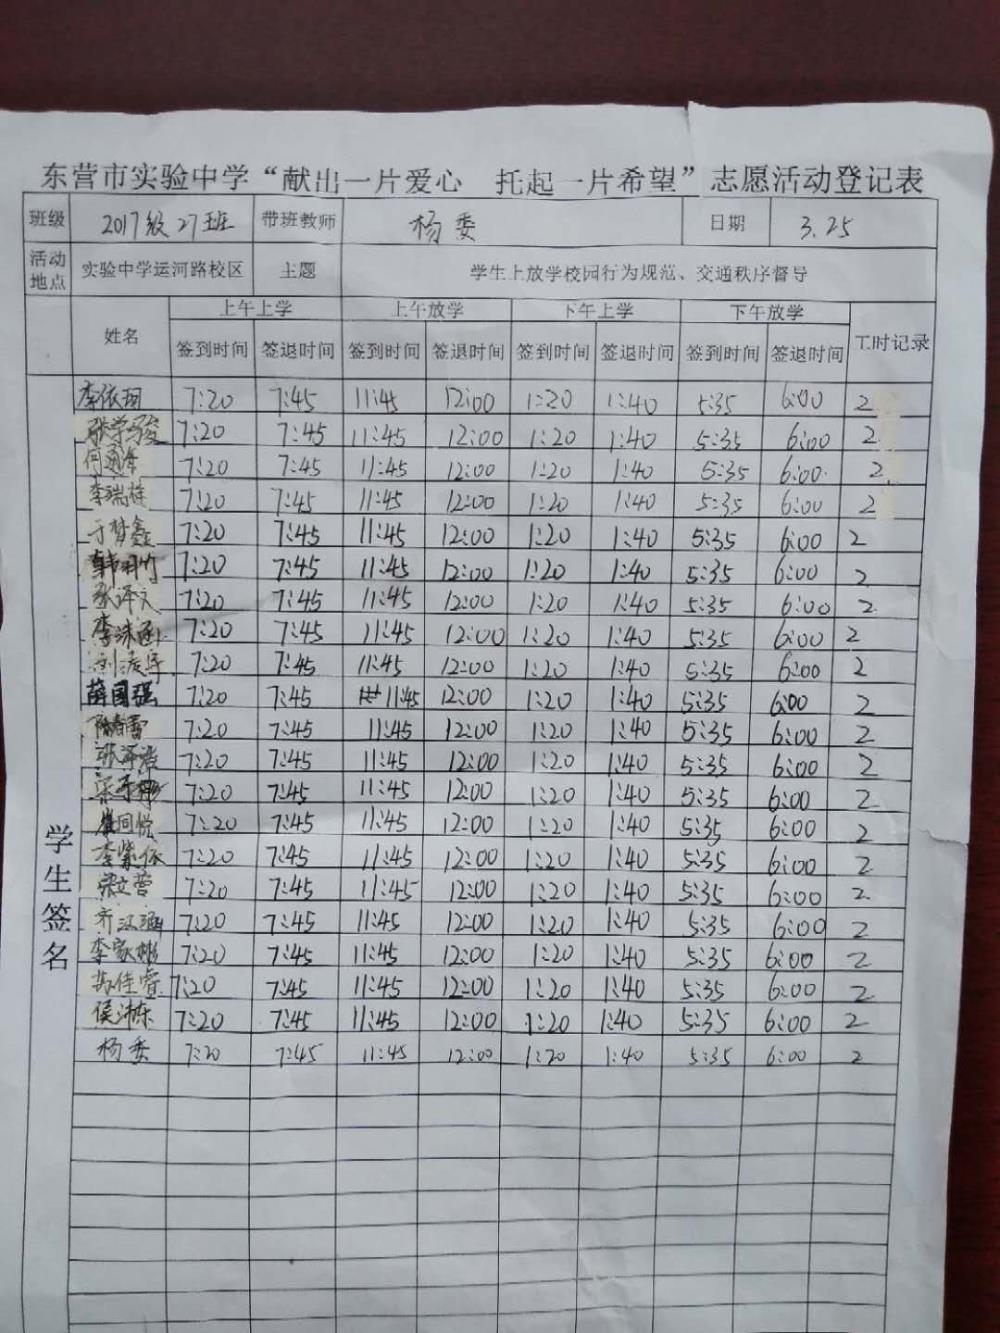 东营市实验中学“献出一片爱心 托起一片希望”志愿活动登记表
班级 2017级27班 带班教师 杨委 日期 3.25
活动地点 实验中学运河路校区 主题 学生上放学校园行为规范、交通秩序督导
姓名 上午上学 上午放学 下午上学 下午放学 工时记录
签到时间 签退时间 签到时间 签退时间 签到时间 签退时间 签到时间 签退时间
学生签名
李依珂 7:20 7:45 11:45 12:00 1:20 1:40 5:35 6:00 2
张学骏 7:20 7:45 11:45 12:00 1:20 1:40 5:35 6:00 2
7:20 7:45 11:45 12:00 1:20 1:40 5:35 6:00 2
李瑞 7:20 7:45 11:45 12:00 1:20 1:40 5:35 6:00 2
于梦鑫 7:20 7:45 11:45 12:00 1:20 1:40 5:35 6:00 2
韩羽竹 7:20 7:45 11:45 12:00 1:20 1:40 5:35 6:00 2
张译文 7:20 7:45 11:45 12:00 1:20 1:40 5:35 6:00 2
李沫涵 7:20 7:45 11:45 12:00 1:20 1:40 5:35 6:00 2
刘 7:20 7:45 11:45 12:00 1:20 1:40 5:35 6:00 2
薛国强 7:20 7:45 11:45 12:00 1:20 1:40 5:35 6:00 2
陈春雷 7:20 7:45 11:45 12:00 1:20 1:40 5:35 6:00 2
张 7:20 7:45 11:45 12:00 1:20 1:40 5:35 6:00 2
7:20 7:45 11:45 12:00 1:20 1:40 5:35 6:00 2
崔同悦 7:20 7:45 11:45 12:00 1:20 1:40 5:35 6:00 2
李紫依 7:20 7:45 11:45 12:00 1:20 1:40 5:35 6:00 2
7:20 7:45 11:45 12:00 1:20 1:40 5:35 6:00 2
齐汉涵 7:20 7:45 11:45 12:00 1:20 1:40 5:35 6:00 2
李家 7:20 7:45 11:45 12:00 1:20 1:40 5:35 6:00 2
苏佳睿 7:20 7:45 11:45 12:00 1:20 1:40 5:35 6:00 2
侯沛东 7:20 7:45 11:45 12:00 1:20 1:40 5:35 6:00 2
杨委 7:20 7:45 11:45 12:00 1:20 1:40 5:35 6:00 2